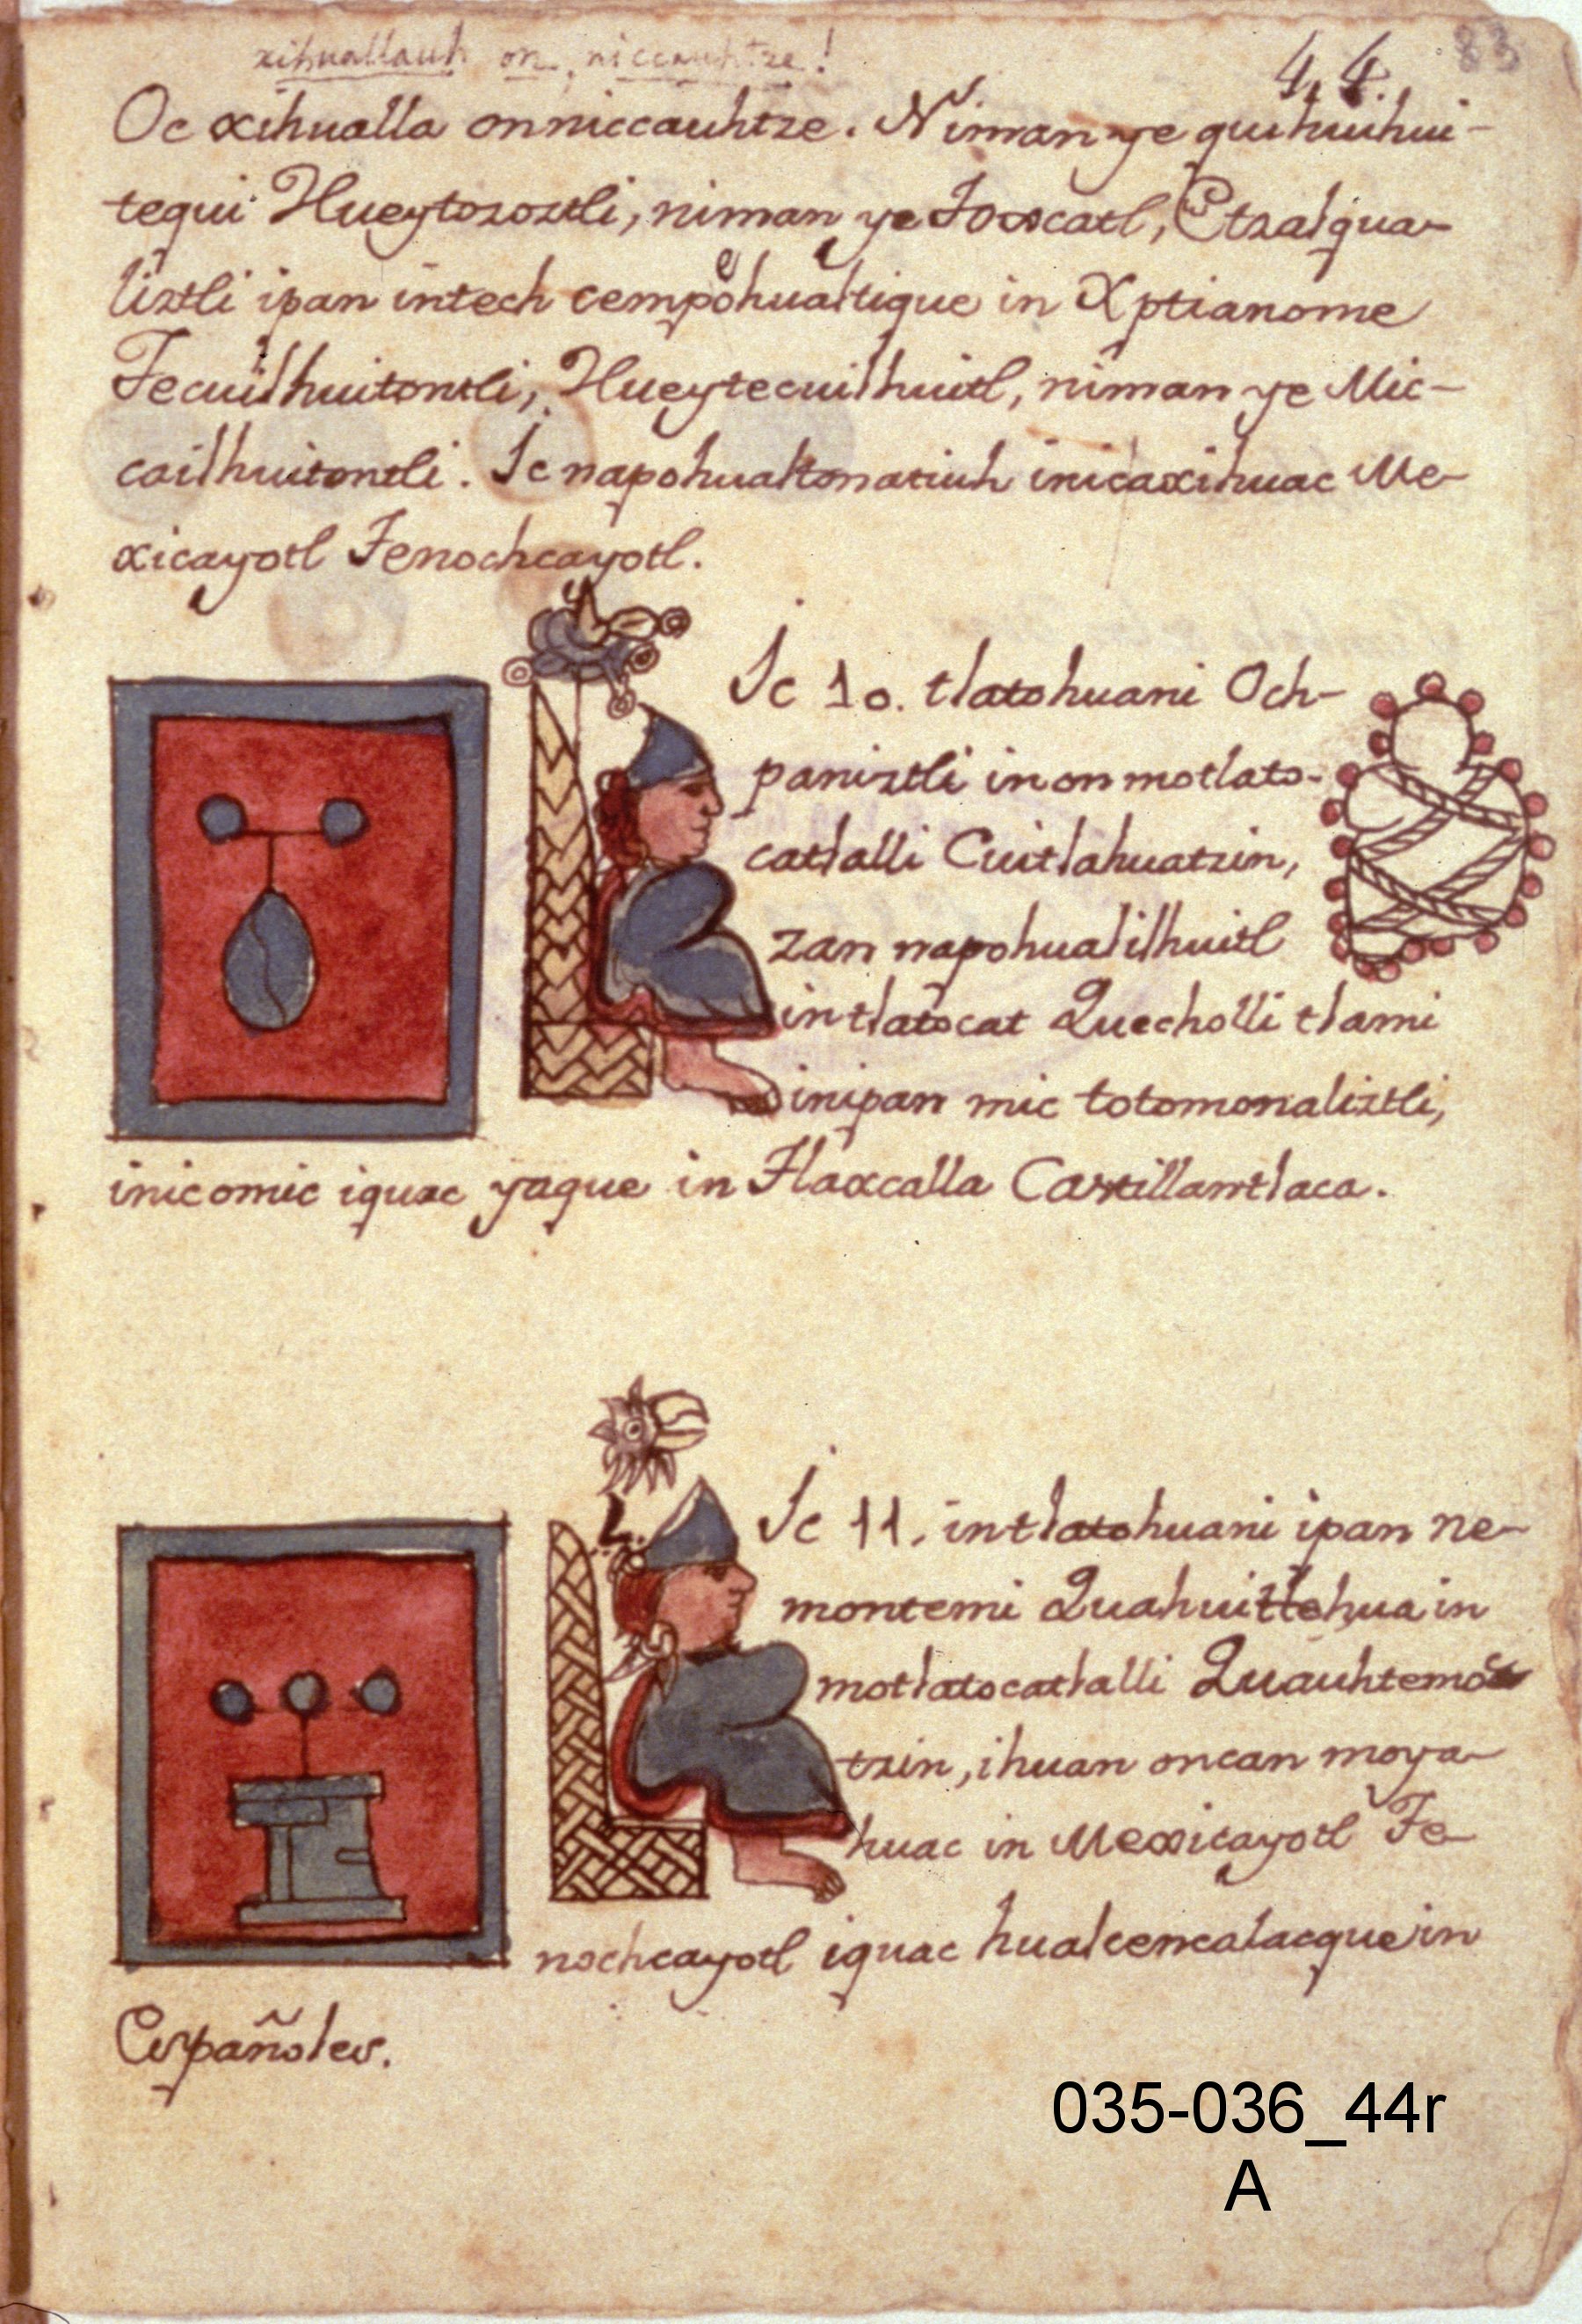 xihuallauh on, niccauhtze!
44. 83
Oc xihualla onniccauhtze. Niman ye quihuihui-
tequi Hueytozoztli, niman ye Toxcatl, Etzalqua-
liztli ipan intech cempohualtique in Xptianome
Tecuilhuitontli, Hueytecuilhuitl, niman ye Mic-
cailhuitontli. Ic napohualtonatiuh inicaxihuac Me-
xicayotl Tenochcayotl.
Ic 10. tlatohuani Och-
paniztli in onmotlato-
catlalli Cuitlahuatzin,
zan napohualilhuitl
intlatocat Quecholli tlami
inipan mic totomonaliztli,
inicomic iquac yaque in Tlaxcalla Caxtillantlaca.
Ic 11. intlatohuani ipan ne-
montemi Quahuitlehua in
motlatocatlalli Quauhtemoc
tzin, ihuan oncan moya-
huac in Mexicayotl Te-
nochcayotl iquac hualcencalacque in
Españoles.
035-036_44r
A